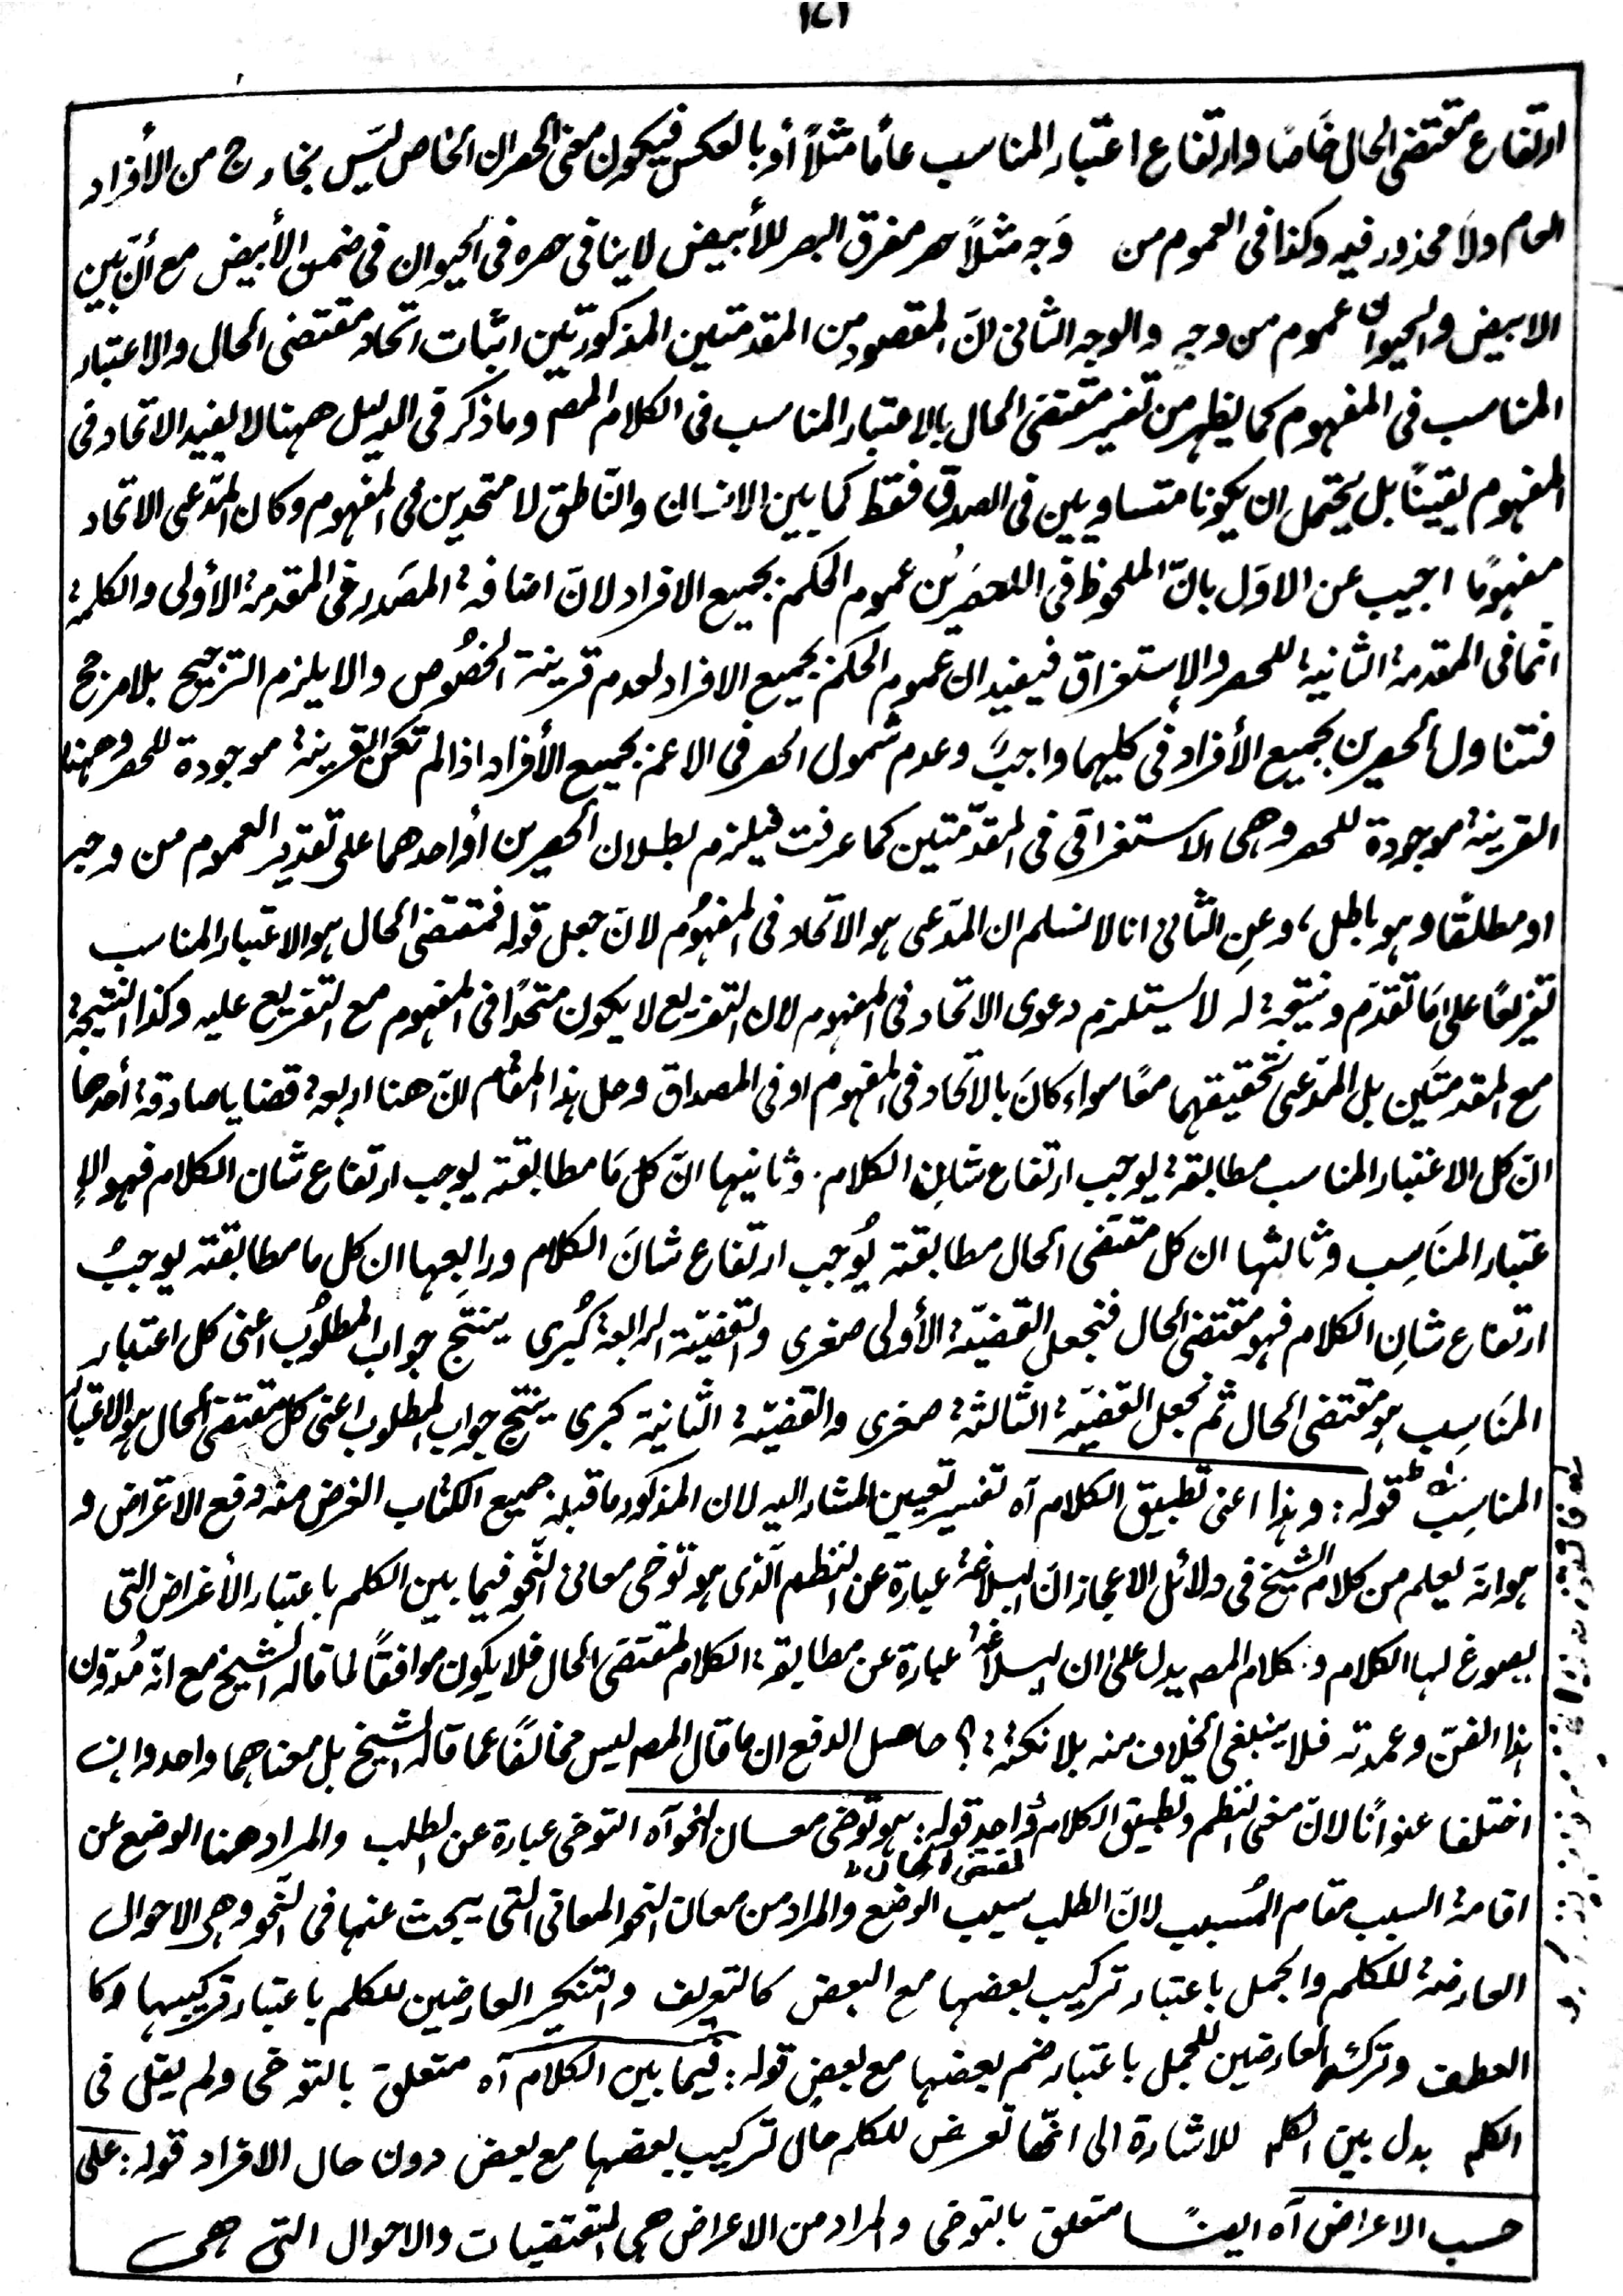 ١٤١
ارتفاع مقتضى الحال خاصًا وارتفاع اعتبار المناسب عأما مثلاً أو بالعكس فيكون معنى الحصر ان الخاص ليس بخارج من الأفراد
العام ولا محذور فيه وكذا فى العموم من وَجه مثلاً حصر مفرق البصر للأبيض لا ينافى حصره فى الحيوان فى ضمن الأبيض مع أنّ بين
الابيض والحيوان عموم من وجهٍ والوجه الثانى انّ المقصود من المقدمتين المذكورتين اثبات اتحاد مقتضى الحال والاعتبار
المناسب فى المفهوم كما يظهر من تفسير مقتضى الحال بالاعتبار المناسب فى الكلام المصم وما ذكر فى الدليل ههنا لا يفيد الاتحاد فى
المفهوم يقينًا بل يحتمل ان يكونا متساويين فى الصدق فقط كما بين الانسان والناطق لا متحدين فى المفهوم وكان المدّعى الاتحاد
مفهومًا اجيب عن الاوّل بانّ الملحوظ فى الحصرين عموم الحكم بجميع الافراد لانّ اضافة المصدر فى المقدمة الأولى والكلمة
انّما فى المقدمة الثانية للحصر والإستغراق فيفيد ان عموم الحكم بجميع الافراد لعدم قرينة الخصُوص والا يلزم الترجيح بلا مرجح
فتناول الحصرين بجميع الأفراد فى كليهما واجبٌ وعدم شمول الحصر فى الاعم بجميع الأفراد اذا لم تكن القرينة موجودة للحصر وههنا
القرينة موجودة للحصر وهى الاستغراقى فى المقدّمتين كما عرفت فيلزم بطلان الحصرين أو احدهما على تقدير العموم من وجه
او مطلقًا وهو باطل، وعن الثانى انا لا نسلم ان المدّعى هو الاتحاد فى المفهوُم لانّ جعل قوله فمقتضى الحال هو الاعتبار المناسب
تفريعًا على مَا تقدّم ونتيجة له لا يستلزم دعوى الاتحاد فى المفهوم لان التفريع لا يكون متحدًا فى المفهوم مع التفريع عليه وكذا النتيجة
مع المقدمتين بل المدّعى تحقيقهما معًا سواء كانَ بالاتحاد فى المفهوم او فى المصداق وحل هذا المقام انّ هنا اربعة قضايا صادقة أحدها
انّ كل الاعتبار المناسب مطابقة يوجب ارتفاع شانِ الكلام. وثانيها انّ كل مَا مطابقته يوجب ارتفاع شان الكلام فهو الإ
عتبار المنَاسِب وثالثها ان كل مقتضى الحال مطابقته يُوجب ارتفاع شانَ الكلام ورابعها ان كل ما مطابقته يوجبُ
ارتفاع شانِ الكلام فهو مقتضى الحال فنجعل القضيّة الأولى صغرى والقضيّة الرابعة كُبرى ينتج جواب المطلوُب اعنى كل اعتبار
المنَاسِب هو مقتضى الحال ثم نجعل القضيّة الثالثة صغرى والقضيّة الثانية كبرى ينتج جواب المطلوب اعنى كل مقتضى الحال هو الاعتبار
المناسِب قوله: وهذا اعنى تطبيق الكلام آه تفسير تعيين المشار اليه لان المذكور ما قبله جميع الكتاب الغرض منه دفع الاعراض و
هو انّه يعلم من كلام الشيخ فى دلائل الاعجاز انّ البلاغة عبارة عن النظم الّذى هو توخى معانى النّحو فيما بين الكلم باعتبار الأغراض التى
يصوغ لها الكلام و كلام المصم يدل على ان البلاغة عبارة عن مطابقة الكلام لمقتضى الحال فلا يكون موافقًا لما قاله الشيخ مع انّه مُدوّن
هذا الفنّ وعمدته فلا ينبغى الخلاف منه بلا نكتة؟ حاصل الدفع ان ما قال المصم ليس مخالفًا عما قاله الشيخ بل معناهما واحد وان
اختلفا عنوانًا لانّ معنى النظم وتطبيق الكلام واحد قوله: هو توخى معان النحو آه التوخى عبارة عن الطلب والمراد هنا الوضع عن
لمقتضى الحال
اقامة السبب مقام المُسبب لانّ الطلب سبب الوضع والمراد من معان النحو المعانى التى يبحث عنها فى النّحو وهى الاحوال
العارضة للكلم والجمل باعتبار تركيب بعضها مع البعض كالتعريف والتنكير العارضين للكلم باعتبار تركيبها وكا
العطف وتركه العارضين للجمل باعتبار ضم بعضها مع بعض قوله: فيما بين الكلام آه متعلق بالتوخى ولم يقل فى
الكلم بدل بين الكلم للاشارة الى انّها تعرض للكلم حال تركيب بعضها مع بعض دون حال الافراد قوله: على
حسب الاعراض آه ايضًا متعلق بالتوخى والمراد من الاعراض هى المقتضيات والاحوال التى هى